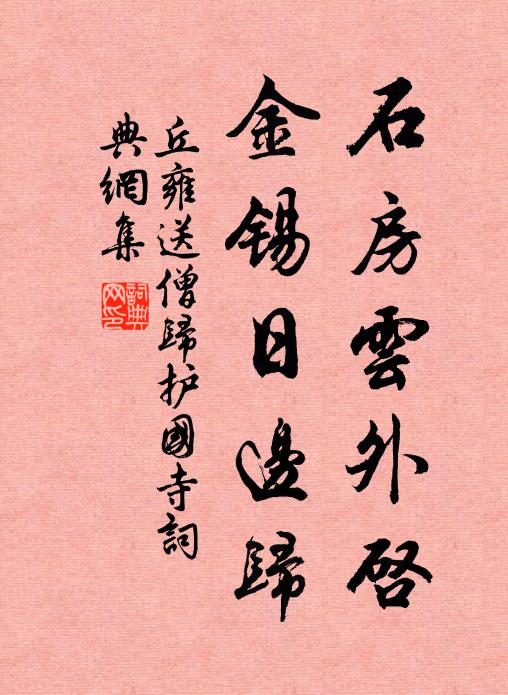 石房雲外啓
金錫日邊歸
丘雍送僧歸护國寺詞
典網集
詞典
网印